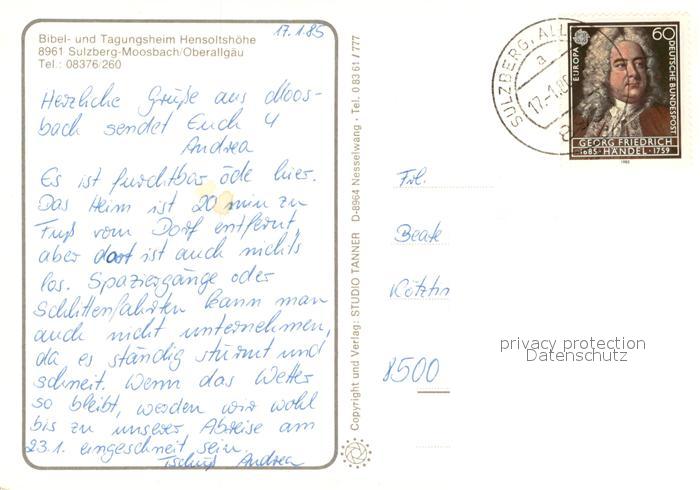 17.1.85
Bibel- und Tagungsheim Hensoltshöhe
8961 Sulzberg-Moosbach/Oberallgäu
Tel.: 08376/260
Herzliche Grüße aus Moos-
bach sendet Euch 4
Andrea
Es ist furchtbar öde hier.
Das Heim ist 20 min zu
Fuß vom Dorf entfernt,
aber dort ist auch nichts
los. Spaziergänge oder
Schlittenfahrten kann man
auch nicht unternehmen,
da es ständig stürmt und
schneit. Wenn das Wetter
so bleibt, werden wir wohl
bis zu unserer Abreise am
23.1. eingeschneit sein.
Tschüß Andrea
Copyright und Verlag: STUDIO TANNER D-8964 Nesselwang · Tel. 0 83 61 / 777
SULZBERG, ALL
a
17.-1.85
EUROPA
60
DEUTSCHE BUNDESPOST
GEORG FRIEDRICH
1685·HÄNDEL·1759
1985
Frl.
Beate
8500
privacy protection
Datenschutz